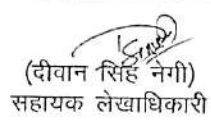 (दीवान सिंह नेगी)
सहायक लेखाधिकारी